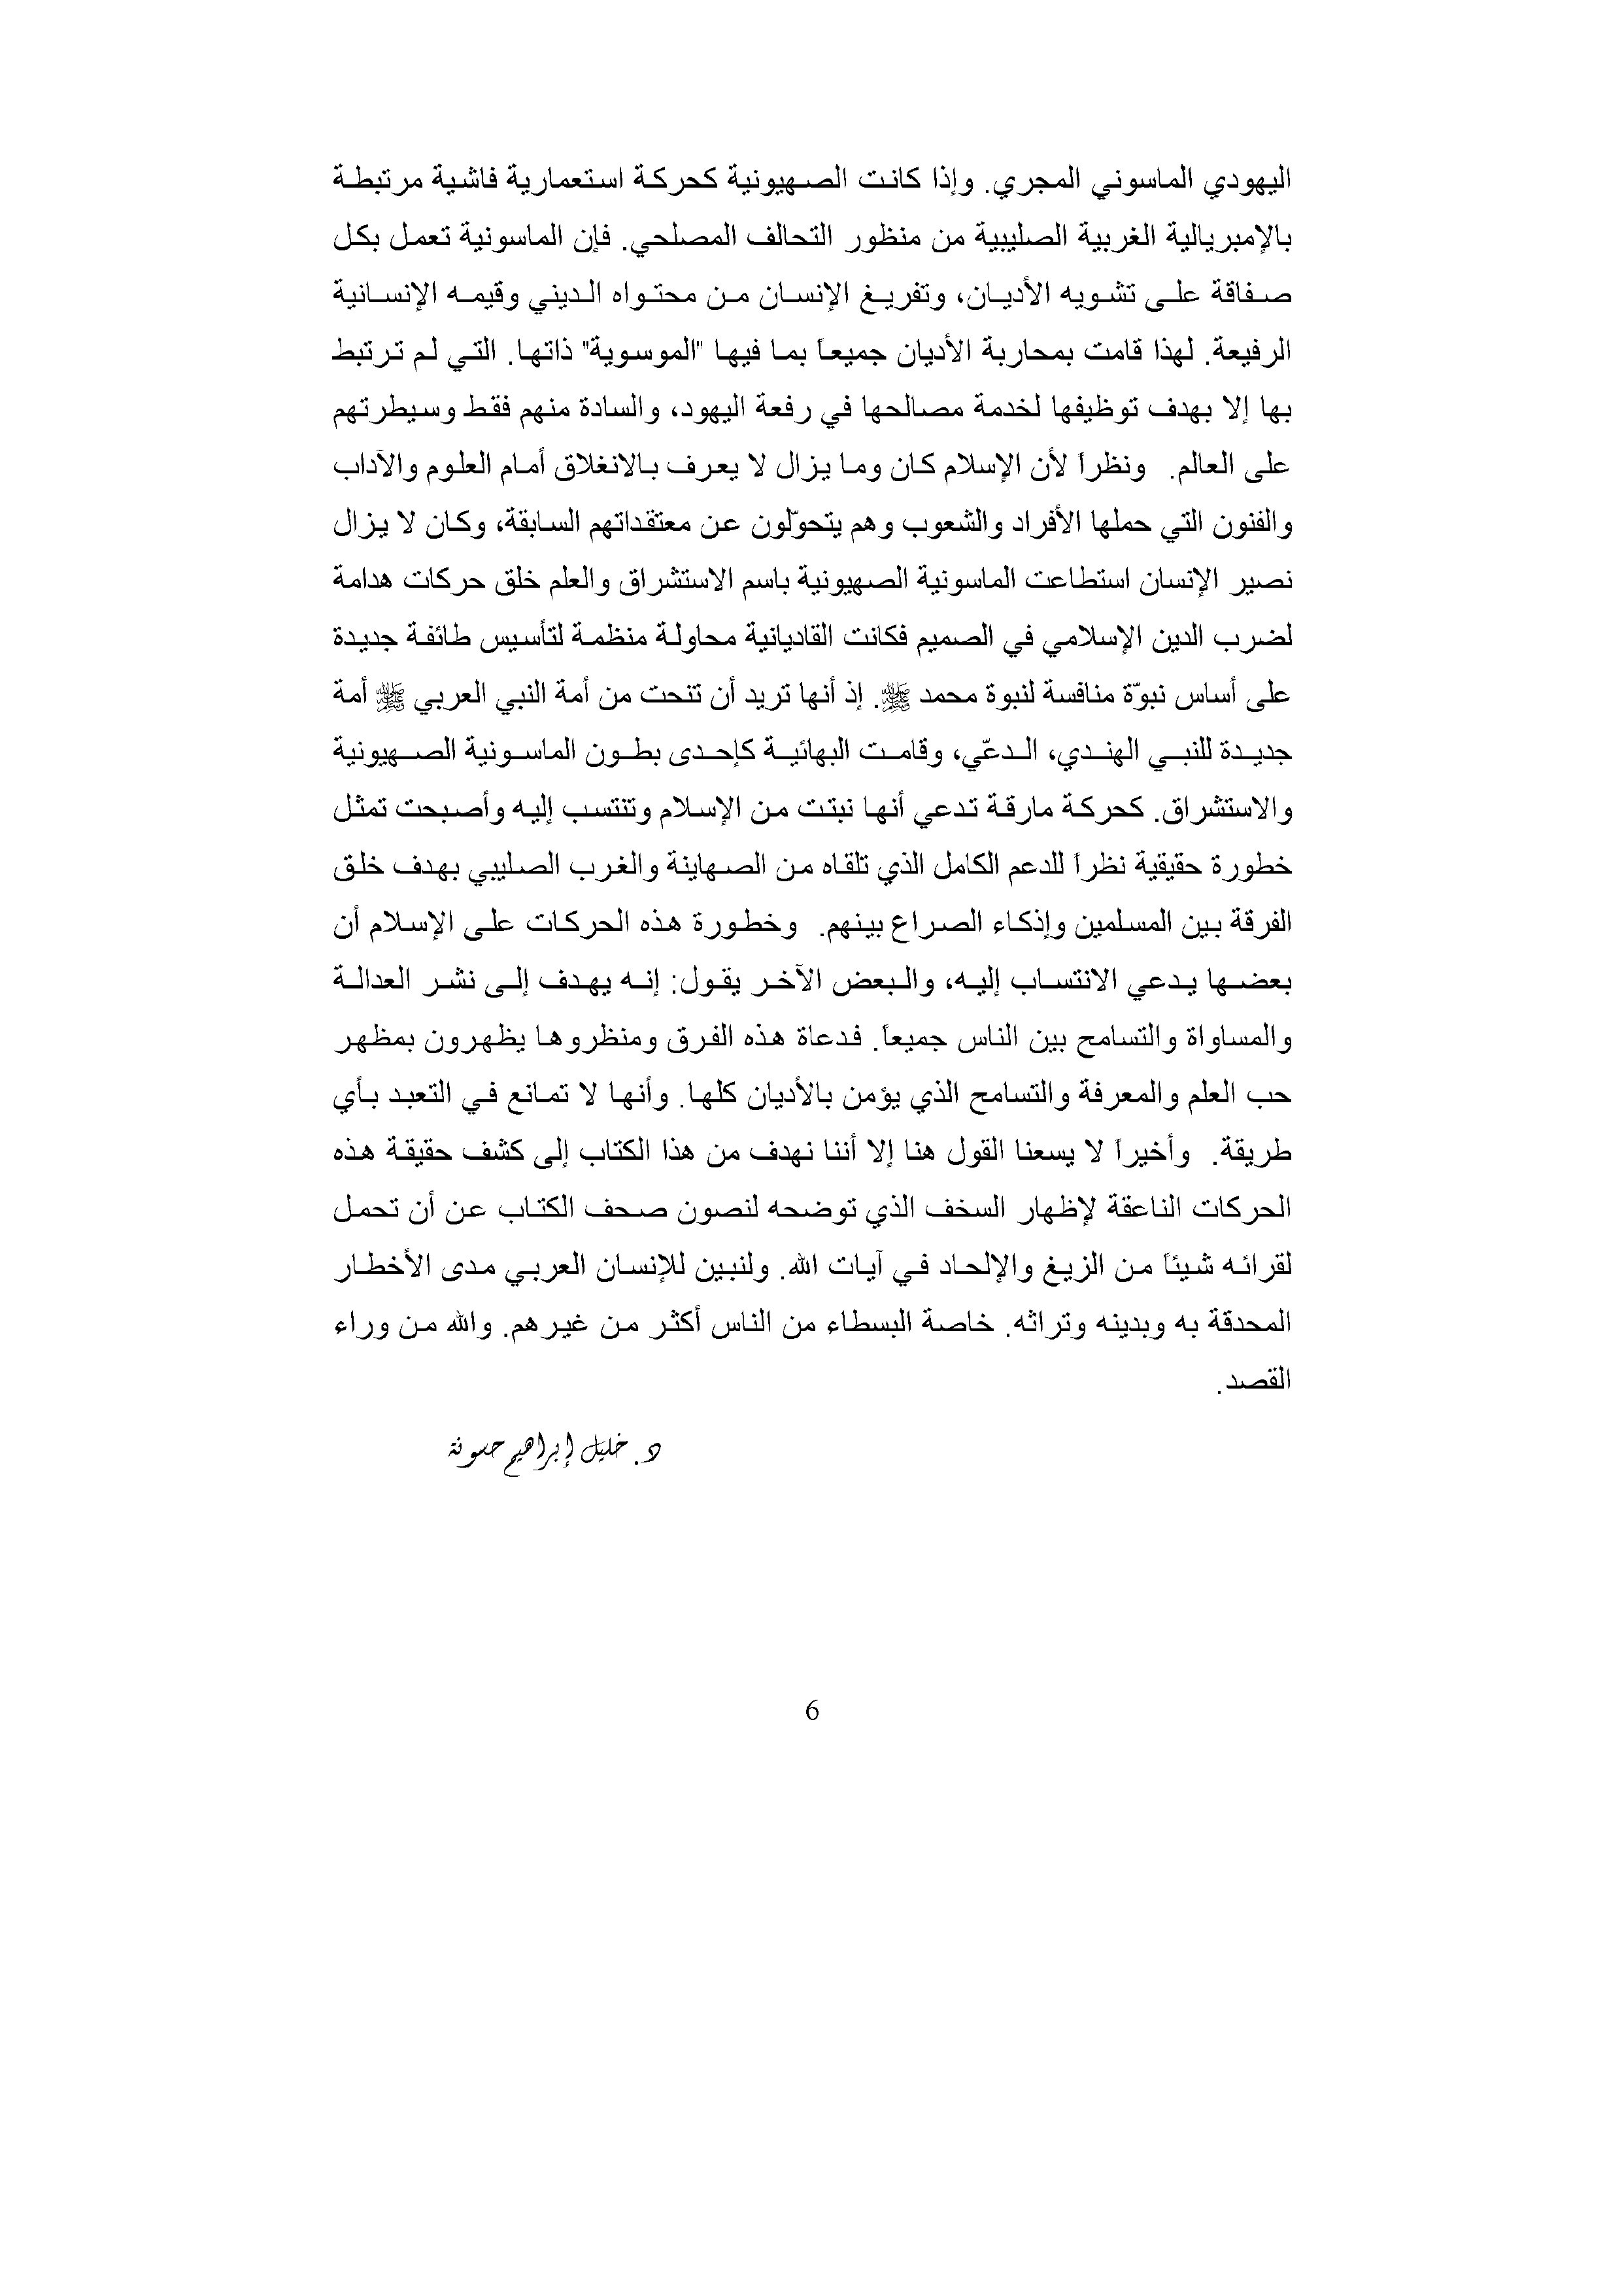 اليهودي الماسوني المجري. وإذا كانت الصهيونية كحركة استعمارية فاشية مرتبطة
بالإمبريالية الغربية الصليبية من منظور التحالف المصلحي. فإن الماسونية تعمل بكل
صفاقة على تشويه الأديان، وتفريغ الإنسان من محتواه الديني وقيمه الإنسانية
الرفيعة. لهذا قامت بمحاربة الأديان جميعاً بما فيها "الموسوية" ذاتها. التي لم ترتبط
بها إلا بهدف توظيفها لخدمة مصالحها في رفعة اليهود، والسادة منهم فقط وسيطرتهم
على العالم. ونظراً لأن الإسلام كان وما يزال لا يعرف بالانغلاق أمام العلوم والآداب
والفنون التي حملها الأفراد والشعوب وهم يتحوّلون عن معتقداتهم السابقة، وكان لا يزال
نصير الإنسان استطاعت الماسونية الصهيونية باسم الاستشراق والعلم خلق حركات هدامة
لضرب الدين الإسلامي في الصميم فكانت القاديانية محاولة منظمة لتأسيس طائفة جديدة
على أساس نبوّة منافسة لنبوة محمد ﷺ. إذ أنها تريد أن تنحت من أمة النبي العربي ﷺ أمة
جديدة للنبي الهندي، الدعّي، وقامت البهائية كإحدى بطون الماسونية الصهيونية
والاستشراق. كحركة مارقة تدعي أنها نبتت من الإسلام وتنتسب إليه وأصبحت تمثل
خطورة حقيقية نظراً للدعم الكامل الذي تلقاه من الصهاينة والغرب الصليبي بهدف خلق
الفرقة بين المسلمين وإذكاء الصراع بينهم. وخطورة هذه الحركات على الإسلام أن
بعضها يدعي الانتساب إليه، والبعض الآخر يقول: إنه يهدف إلى نشر العدالة
والمساواة والتسامح بين الناس جميعاً. فدعاة هذه الفرق ومنظروها يظهرون بمظهر
حب العلم والمعرفة والتسامح الذي يؤمن بالأديان كلها. وأنها لا تمانع في التعبد بأي
طريقة. وأخيراً لا يسعنا القول هنا إلا أننا نهدف من هذا الكتاب إلى كشف حقيقة هذه
الحركات الناعقة لإظهار السخف الذي توضحه لنصون صحف الكتاب عن أن تحمل
لقرائه شيئاً من الزيغ والإلحاد في آيات الله. ولنبين للإنسان العربي مدى الأخطار
المحدقة به وبدينه وتراثه. خاصة البسطاء من الناس أكثر من غيرهم. والله من وراء
القصد.
د. خليل إبراهيم حسونة
6